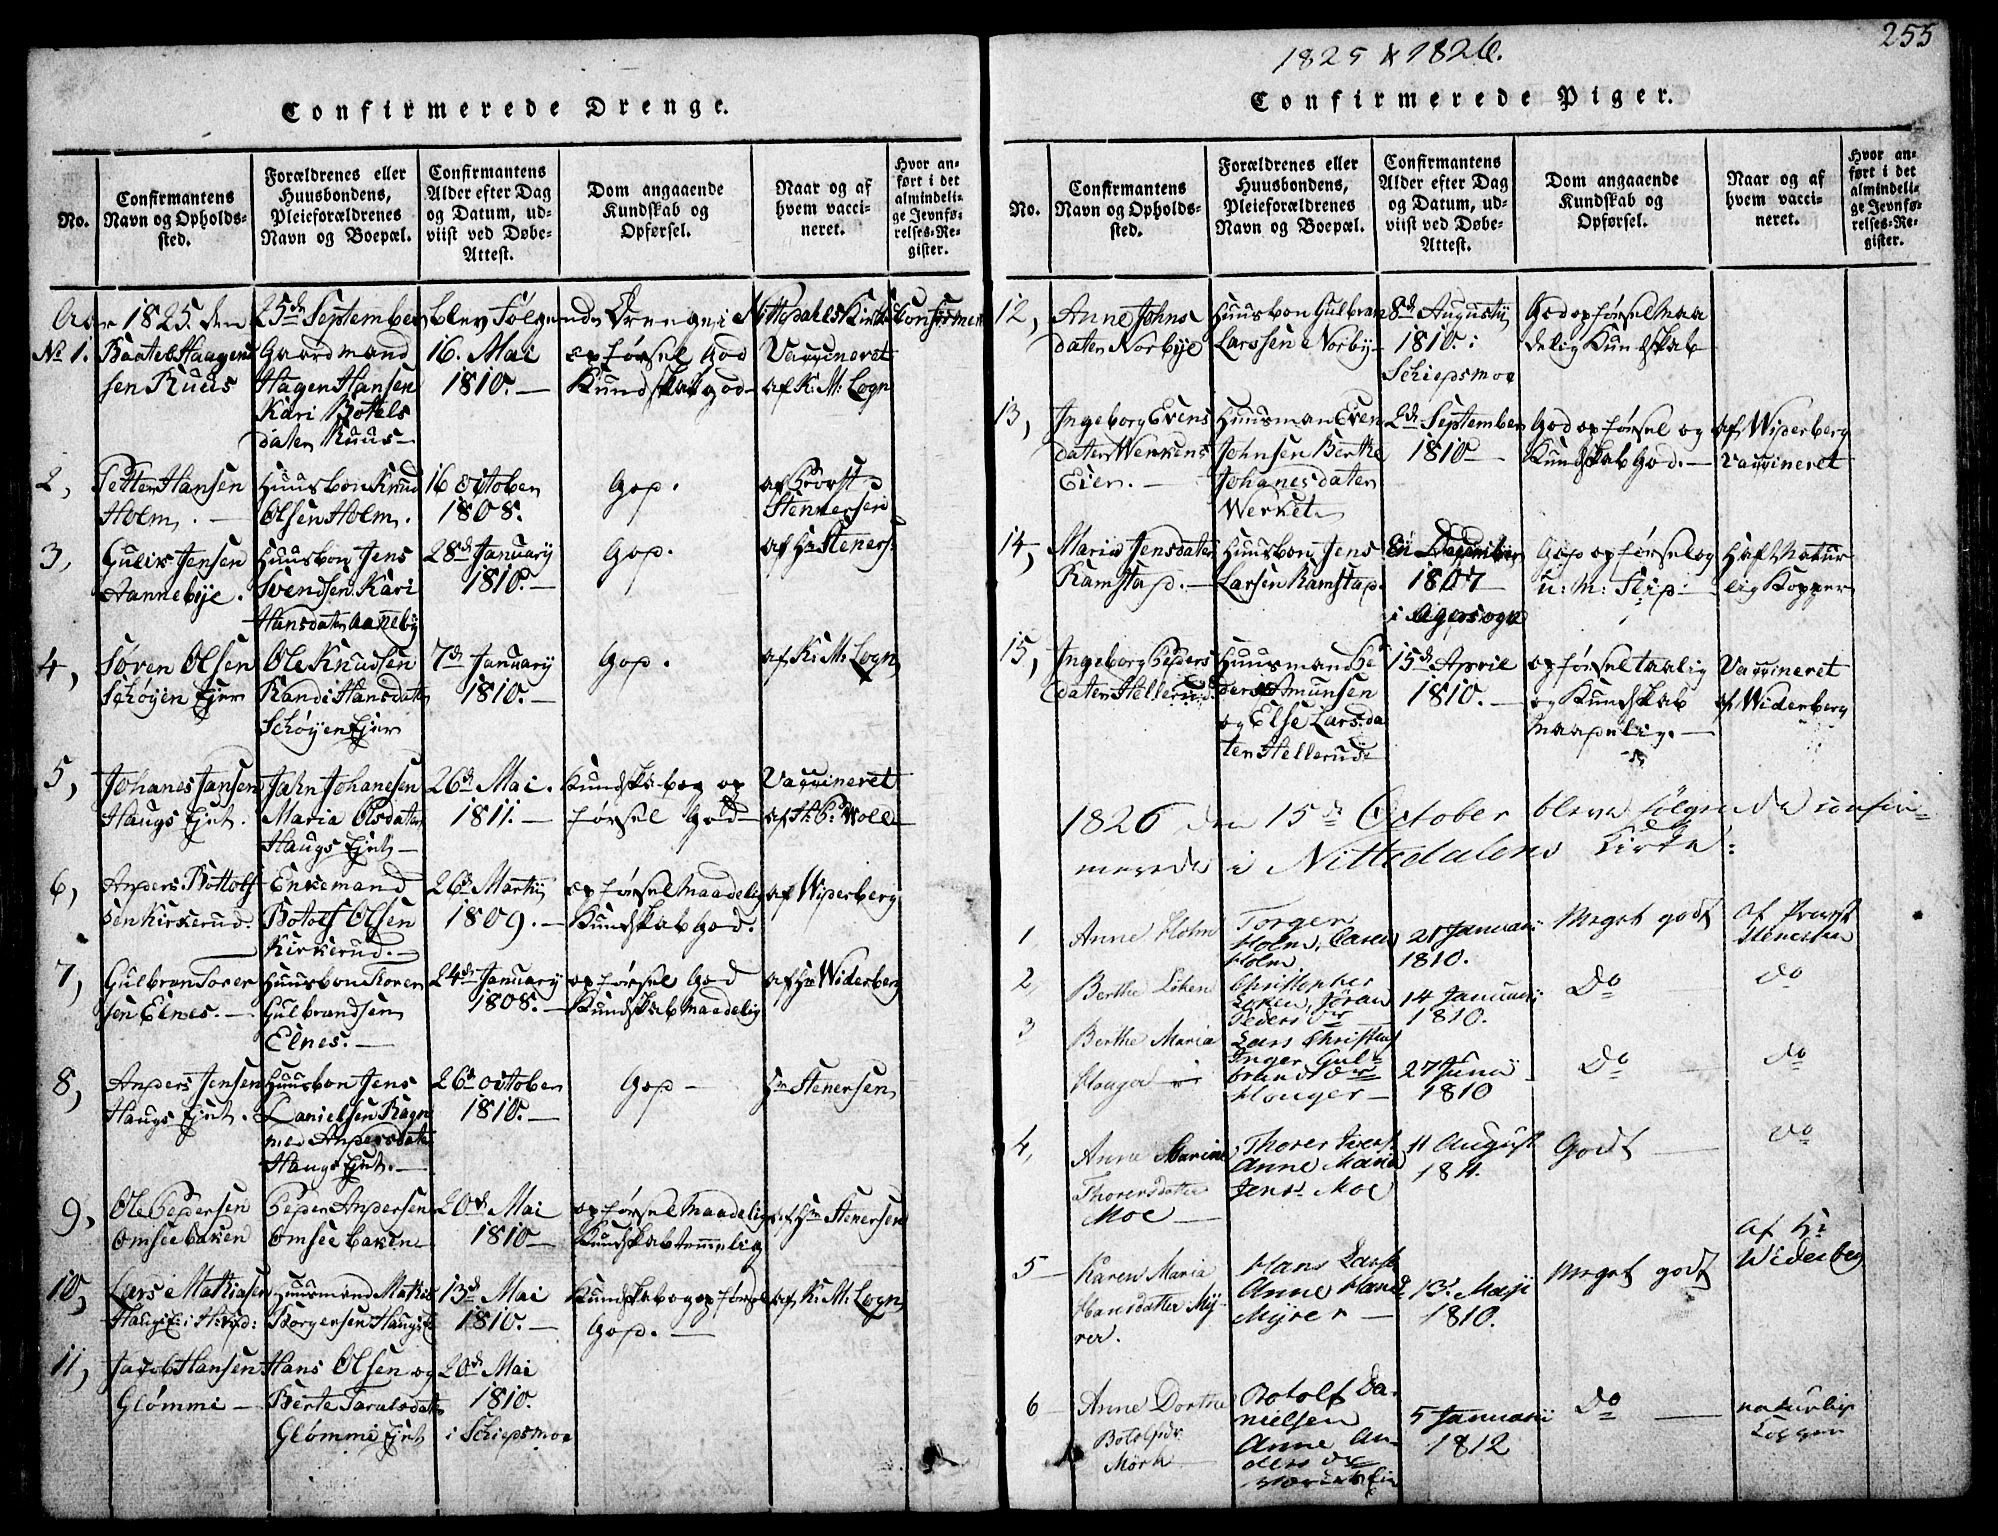 255
1825 & 1826.
Confirmerede Drenge.
No.
Confirmantens
Navn og Opholds-
sted.
Forældrenes eller
Huusbondens,
Pleieforældrenes
Navn og Boepæl.
Confirmantens
Alder efter Dag
og Datum, ud-
viist ved Døbe-
Attest.
Dom angaaende
Kundskab og
Opførsel.
Naar og af
hvem vacci-
neret.
Hvor an-
ført i det
almindeli-
ge Jevnfø-
relses-Re-
gister.
Aar 1825. den 25de September blev følgende Drenge i Nittedahls Kirke
No 1.
sen Ruus
Gaardmand
Hagen Hansen
Kari Bottels
dater Ruus
16. Mai
1810. —
opførsel God
Kundskab god —
Vaccineret
af K: M: Logn
2,
Petter Hansen
Holm. —
Huusbon Knud
Olsen Holm.
16 october
1808.
God.
Stennersen
3,
Gulik Jensen
Aannebye.
Huusbon Jens
Svendsen Kari
Hansdater Aaneby
28de January
1810. —
God.
4,
Søren Olsen
Schøyen Ejer
Ole Knudsen
Randi Hansdater
Schøyen Ejer
7de January
1810. —
God.
af K: M: Logn
5,
Johanes Jansen
Haugs Ejet.
Jahn Johanesen
Maria Olsdater
Haugs Ejet —
26de Mai.
1811. —
Kundskab og op
førsel God —
Vaccineret
6,
Anders Bottolf
sen Kirkerud.
Enkemand
Botolf Olsen
Kirkerud. —
26de Martij
1809. —
opførsel Maadelig
Kundskab God.
af Widerberg
7,
Gulbran Torer
sen Elnes. —
Huusbon Torer
Gulbrandsen
Elnes. —
24de January
1808. —
opførsel God
Kundskab Maadelig
af Hr Widerberg
8,
Anders Jensen
Haugs Ejet.
Huusbon Jens
Danielsen Ragn
Haugs Ejet. —
26de october
1810. —
God —
Hr Stenersen
9,
Ole Pedersen
Peder Andersen
20de Mai
1810 —
opførsel Maadelig
Kundskab temmelig
af Hr Stenersen
10,
Lars Mathiasen
Huusmand Mathis
Borgersen Haugs E
13de Mai
1810. —
Kundskab og opførsel
God. —
af K: M: Logn
11,
Jacob Hansen
Glømmi —
Hans Olsen og
Glømmi Ejet
20de Mai
1810.
i Schiedsmoe
Confirmerede Piger.
No.
Confirmantens
Navn og Opholds-
sted.
Forældrenes eller
Huusbondens,
Pleieforældrenes
Navn og Boepæl.
Confirmantens
Alder efter Dag
og Datum, ud-
viist ved Døbe-
Attest.
Dom angaaende
Kundskab og
Opførsel.
Naar og af
hvem vacci-
neret.
Hvor an-
ført i det
almindeli-
ge Jevnfø-
relses-Re-
gister.
12,
Anne Johns
dater Norbye
Huusbon Gulbran
Larssen Norby —
8de Augustij
1810.
Schiepsmoe
God opførsel Maa
delig Kundskab
13,
Ingeborg Evens
dater Werkens
Eier. —
Huusman Even
Johnsen Berthe
Johanesdater
Werket
2de September
1810 —
God opførsel og
Kundskab God. —
af Widerberg
Vaccineret
14,
Maria Jensdater
Ramstad. —
Huusbon Jens
Larsen Ramstad.
31 December
1807
i Agersogn
God opførsel og
u: M: Flid
Haft Natur
lig Kopper
15,
Ingeborg Peders
dater Hellerud.
Huusman Pe
ders Amunsen
og Else Larsda
ter Hellerud
15de April
1810. —
opførsel taalig
og Kundskab
Maadelig. —
Vaccineret
af Widerberg
1826 den 15de October bleve følgende confir-
merede i Nittedalens Kirke:
1,
Anne Holm
Torger
Holm, Caren
Holm
21 Januari
1810.
Meget godt
af Provst
2,
Berthe Løken
Christopher
Løken, Jøran
Peders Dr
14 Januarij
1810.
Do
Do
3
Berthe Maria
Houger
Lars Christofs
Inger Gul-
brands Dr
Houger —
27 Junii
1810
Do
Do
4,
Anne Marine
Thorersdatter
Moe —
Thorer Iversn
Anne Maria
Jens. Moe
11 August
1811.
Godt —
Do
5 —
Karen Maria
Hansdatter My-
rer.
Hans Larsn
Anne Hans
Myrer —
13. Maji
1810.
Meget godt
af Hr
Widerberg
6 —
Anne Dorthe
Botolfsdr
Mørk —
Botolf Da-
nielsen
Anne An-
ders Dr
5 Januarij
1812
Do —
naturlig
Kopper